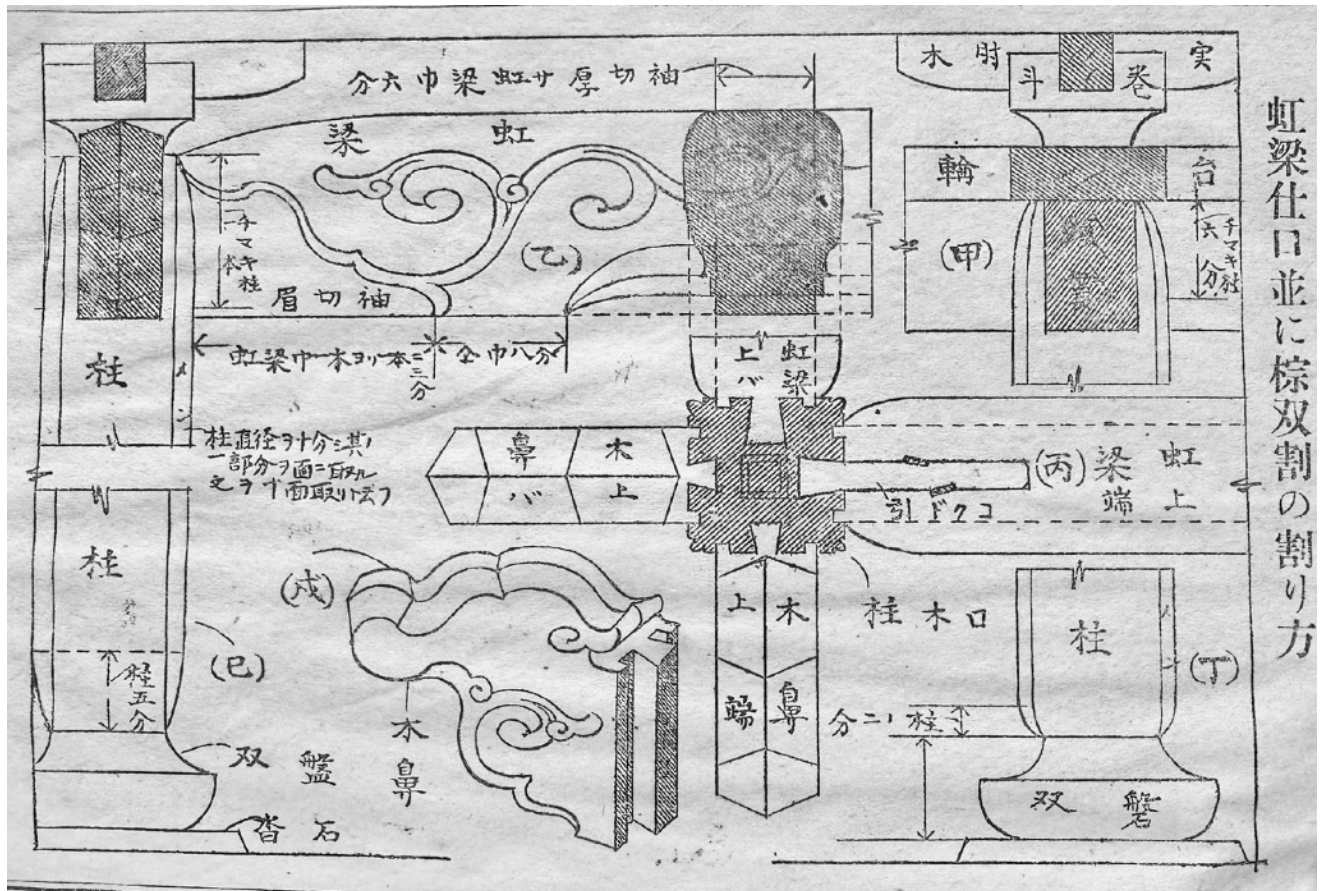 虹梁仕口並に棕双割の割り方
実肘木
巻斗
台輪
(甲)
チマキ柱六分
袖切厚サ虹梁巾六分
虹梁
チマキ柱
(乙)
袖切眉
虹梁巾一本ヨリ一本ニ三分
仝巾八分
柱
メン
柱直径ヲ十分ニ其ノ
一部分ヲ面ニ取ル
之ヲ十面取リト云フ
虹梁
上バ
木鼻
上バ
(丙)
虹梁
上端
コクド引
柱木口
木鼻
上端
(戊)
木鼻
柱
(巳)
柱径五分
双盤
沓石
柱
(丁)
柱ノ二分
双盤